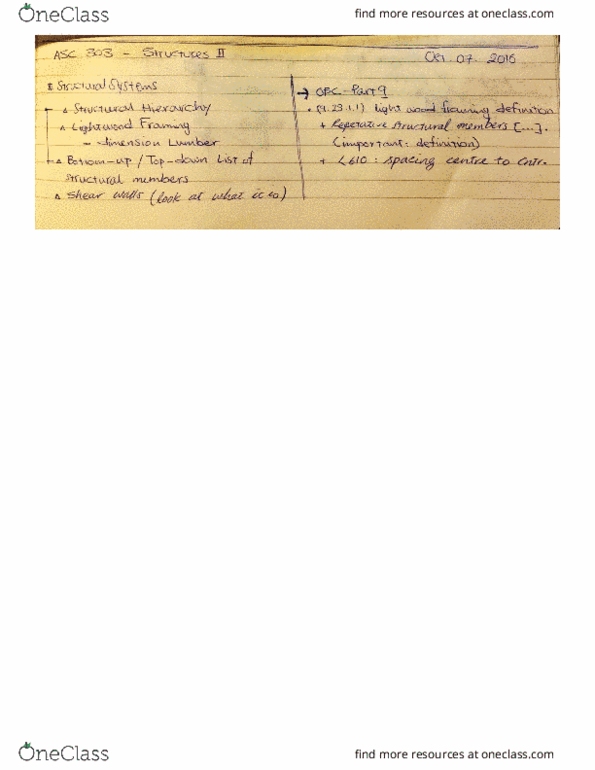 OneClass
find more resources at oneclass.com
ASC 303 - Structures II
Oct. 07. 2016
Structural Systems
Structural Hierarchy
Lightwood Framing
- dimension Lumber
Bottom-up / Top-down List of
structural members
Shear walls (look at what it is)
→ OBC - Part 9
• (9.23.1.1) light wood framing definition
+ Reperative structural members [...].
(important: definition)
+ <610 : spacing centre to cntr.
OneClass
find more resources at oneclass.com